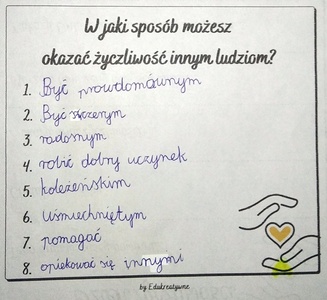 W jaki sposób możesz
okazać życzliwość innym ludziom?
1. Być prawdomównym
2. Być szczerym
3. radosnym
4. robić dobry uczynek
5. koleżeńskim
6. uśmiechniętym
7. pomagać
8. opiekować się innymi
by Edukreatywne